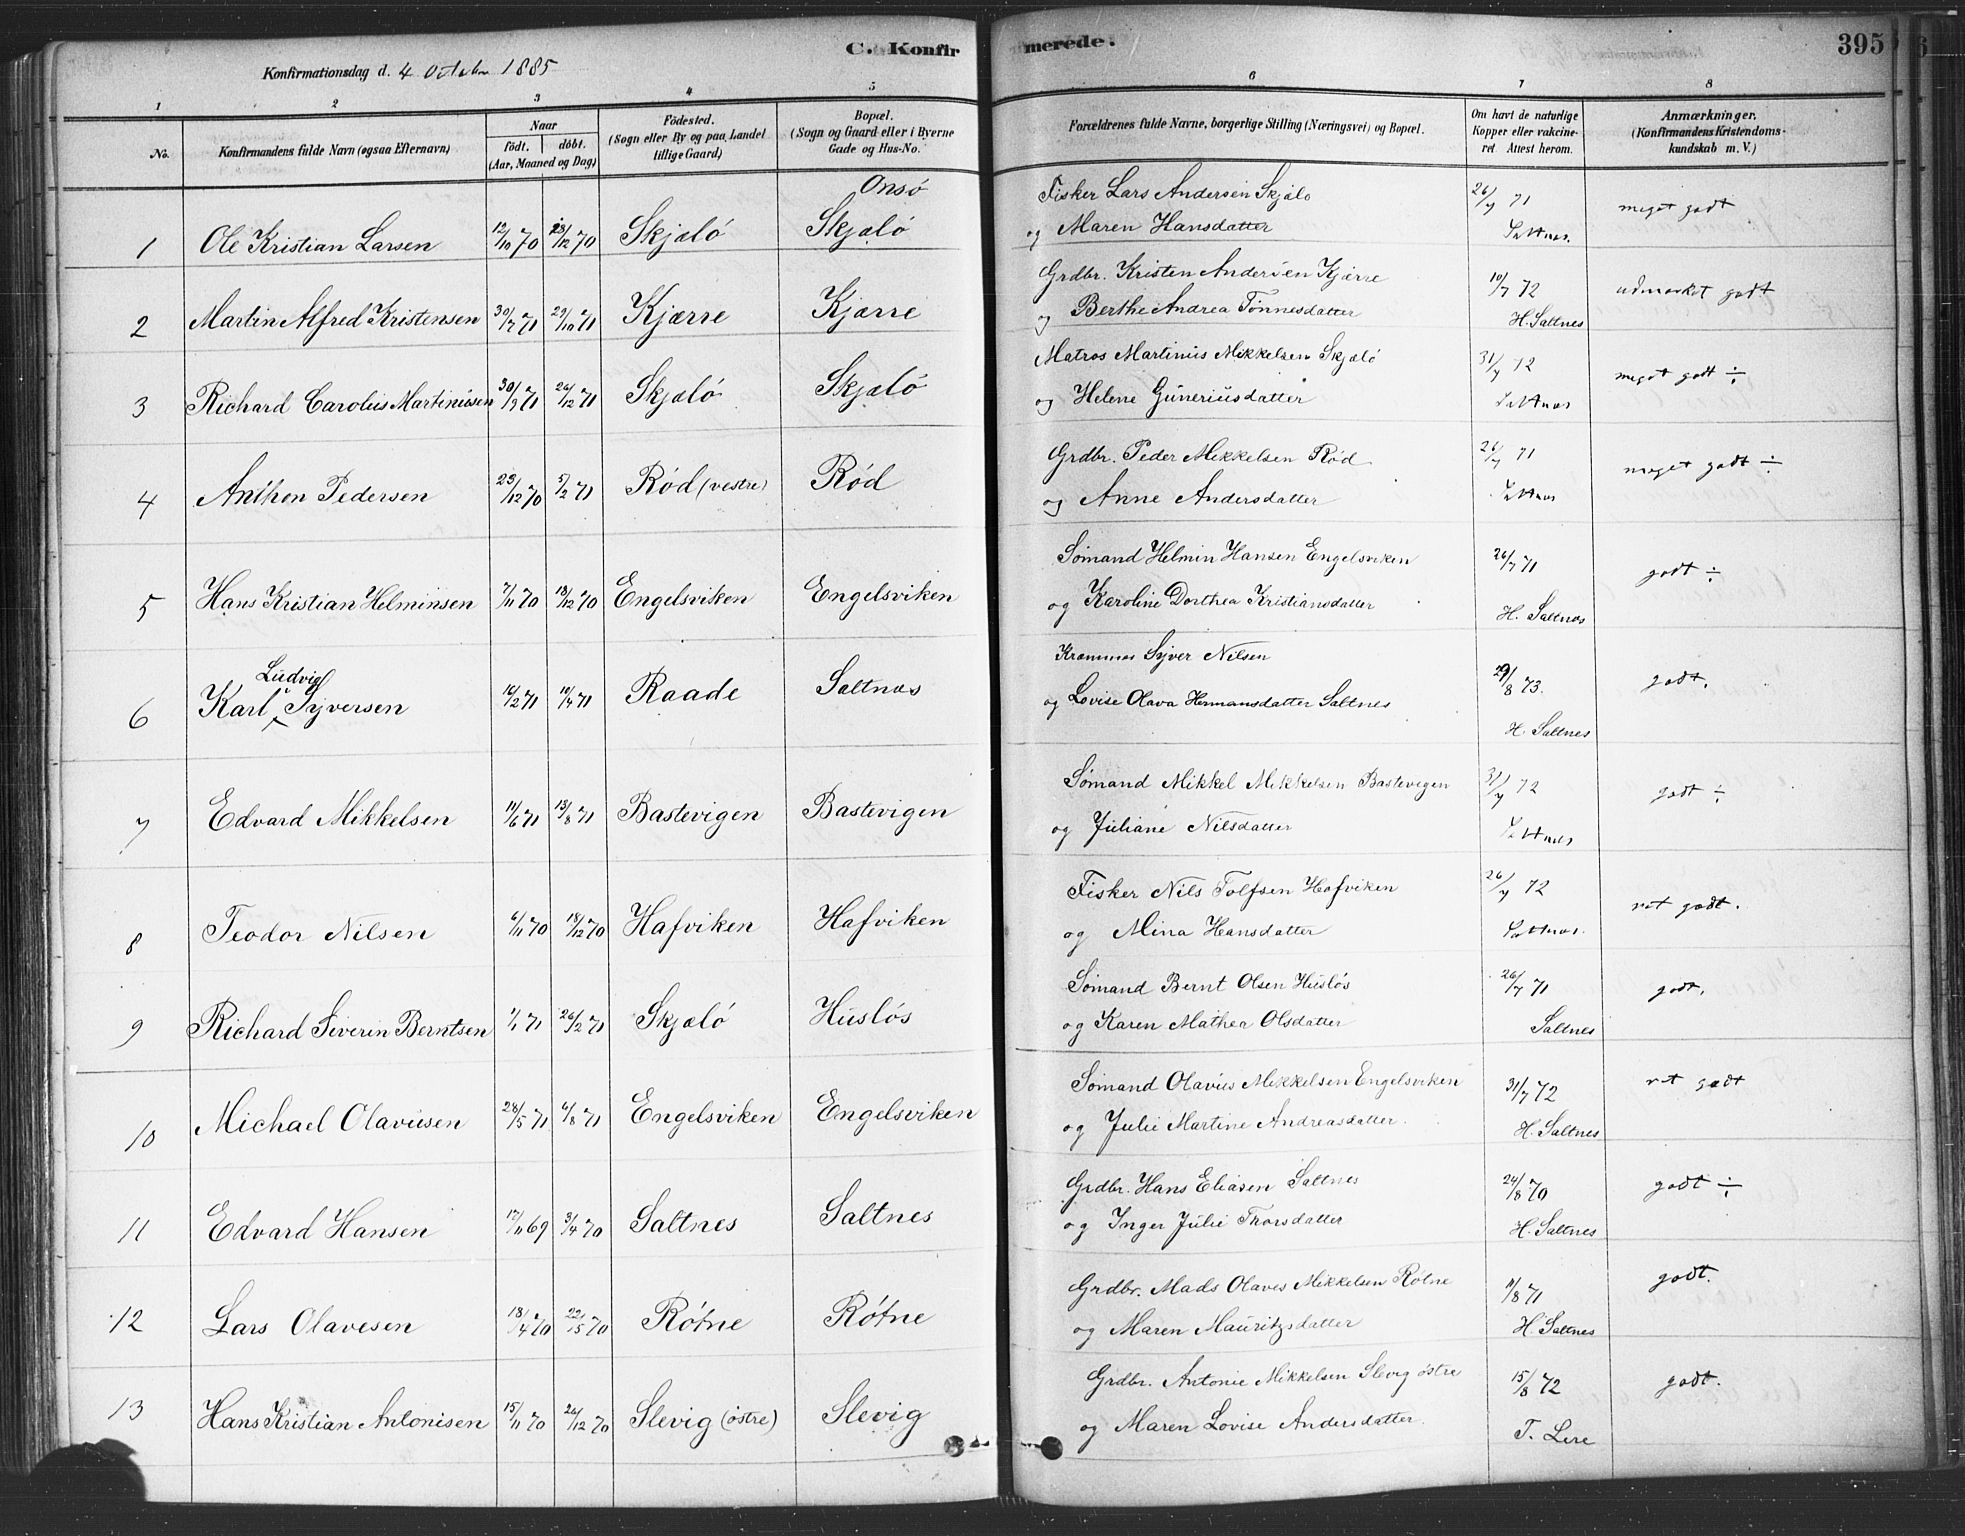 C. Konfirmerede. 395
Konfirmationsdag d. 4 October 1885
1 2 3 4 5 6 7 8
No.
Konfirmandens fulde Navn (ogsaa Efternavn)
Naar
födt. döbt.
(Aar, Maaned og Dag)
Födested.
(Sogn eller By og paa Landet
tillige Gaard)
Bopæl.
(Sogn og Gaard eller i Byerne
Gade og Hus-No.
Forældrenes fulde Navne, borgerlige Stilling (Næringsvei) og Bopæl.
Om havt de naturlige
Kopper eller vakcine-
ret Attest herom.
Anmærkninger.
(Konfirmandens Kristendoms-
kundskab m. V.)
Onsö
Fisker Lars Andersen Skjælö 26/7 71 meget godt
1 Ole Kristian Larsen 12/10 70 28/12 70 Skjælö Skjælö og Maren Hansdatter Saltnæs.
Grdbr. Kristen Andersen Kjærre 10/7 72 udmærket godt
2 Martin Alfred Kristensen 30/7 71 29/10 71 Kjærre Kjærre og Berthe Andrea Tönnesdatter H. Saltnes
Matros Martinius Mikkelsen Skjælö 31/7 72 meget godt ÷
3 Richard Carolius Martiniusen 30/9 71 26/12 71 Skjælö Skjælö og Helene Guneriusdatter Saltnæs
Grdbr. Peder Mikkelsen Röd 26/7 71 meget godt ÷
4 Anthon Pedersen 23/12 70 5/2 71 Röd (vestre) Röd og Anne Andersdatter Saltnæs
Sömand Helmin Hansen Engelsviken 26/7 71 godt ÷
5 Hans Kristian Helminsen 7/11 70 13/12 70 Engelsviken Engelsviken og Karoline Dorthea Kristiansdatter H. Saltnæs
Ludvig Syver Nilsen 29/8 73. godt.
6 Karl Syversen 16/2 71 10/4 71 Raade Saltnæs og Lovise Olava Hermansdatter Saltnes H. Saltnes
Sömand Mikkel Mikkelsen Bastevigen 31/7 72 godt ÷
7 Edvard Mikkelsen 11/6 71 13/8 71 Bastevigen Bastevigen og Juliane Nilsdatter Saltnæs
Fisker Nils Tolfsen Hafviken 26/7 72 ret godt.
8 Teodor Nilsen 6/11 70 18/12 70 Hafviken Hafviken og Mina Hansdatter Saltnæs.
Sömand Bernt Olsen Huslös 26/7 71 godt.
9 Richard Siverin Berntsen 1/1 71 26/2 71 Skjælö Huslös og Karen Mathea Olsdatter Saltnes
Sömand Olavus Mikkelsen Engelsviken 31/7 72 ret godt
10 Michael Olavusen 28/5 71 6/8 71 Engelsviken Engelsviken og Julie Martine Andreasdatter. H. Saltnes
Grdbr. Hans Eliasen Saltnes 24/8 70 godt ÷
11 Edvard Hansen 17/11 69 3/4 70 Saltnes Saltnes og Inger Julie Thorsdatter H. Saltnes
Grdbr. Mads Olaves Mikkelsen Rötne 11/8 71 godt.
12 Lars Olavesen 18/4 70 22/5 70 Rötne Rötne og Maren Mauritzdatter H. Saltnes
Grdbr. Antonie Mikkelsen Slevig östre 15/8 72 godt.
13 Hans Kristian Antonisen 15/11 70 26/12 70 Slevig (östre) Slevig og Maren Lovise Andersdatter. T. Lere